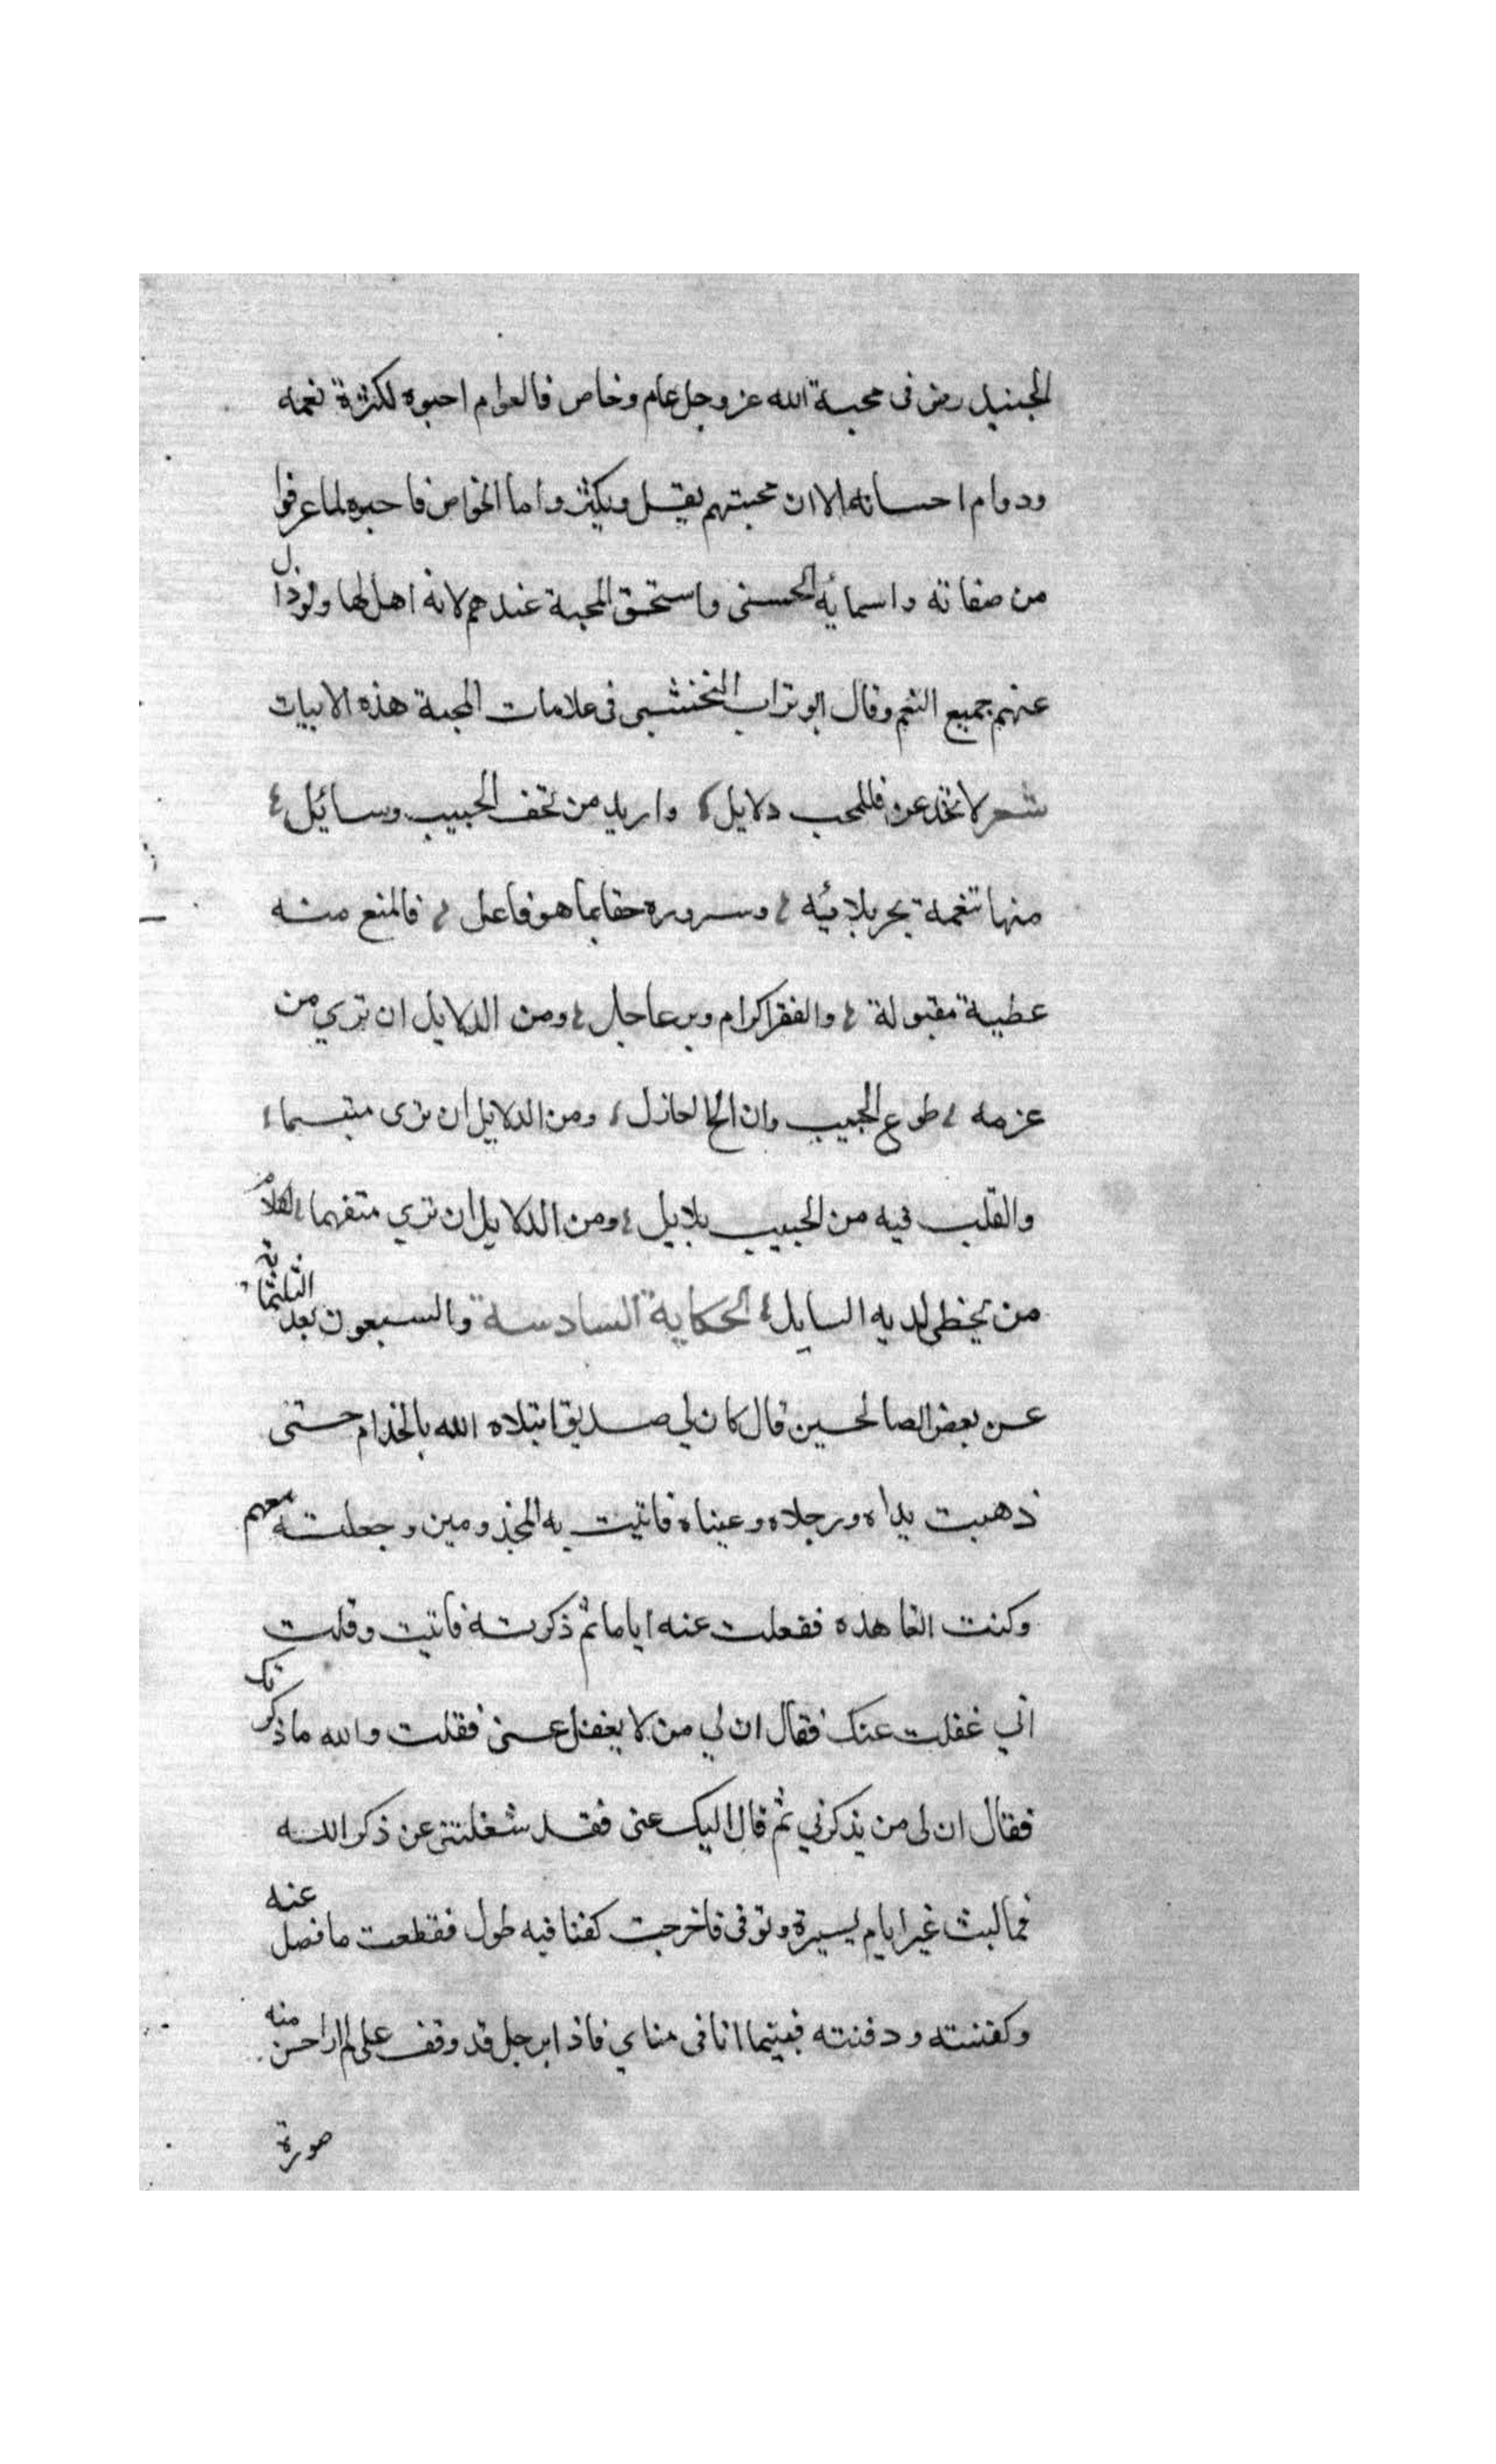 الجنيد رض في محبة الله عز وجل عام وخاص فالعوام احبوه لكثرة نعمه
ودوام احسانه الا ان محبتهم يقيل ويكثر واما الخواص فاحبوه لما عرفوا
من صفاته واسمايه الحسنى واستحق المحبة عندهم لانه اهل لها ولو ذال
عنهم جميع النعم وقال ابو تراب النخشبي في علامات المحبة هذه الابيات
شعر لا تخدعن فللمحب دلايل واريد من تحف الحبيب وسائل
منها تنعمه بحر بلائيه وسروره حقا بما هو فاعل فالمنع منه
عطية مقبولة والفقر اكرام وبر عاجل ومن الدلايل ان تري من
عزمه طوع الحبيب وان الح العاذل ومن الدلايل ان ترى متبسما
والقلب فيه من الحبيب بلابل ومن الدلايل ان تري متفهما لكلام
من يخطى لديه السايل الحكاية السادسة والسبعون بعد الثلثماية
عن بعض الصالحين قال كان لي صديق ابتلاه الله بالجذام حتى
ذهبت يداه ورجلاه وعيناه فاتيت به المجذومين وجعلته معهم
وكنت اتعاهده فغفلت عنه اياما ثم ذكرته فاتيت وقلت
اني غفلت عنك فقال ان لي من لا يغفل عني فقلت والله ما ذكرتك
فقال ان لى من يذكرني ثم قال اليك عنى فقد شغلتني عن ذكر الله
فما لبث غير ايام يسيرة وتوفى فاخرجت كفنا فيه طول فقطعت ما فضل عنه
وكفنته ودفنته فبينما انا فى منامي فاذا برجل قد وقف على لم ار احسن منه
صورة